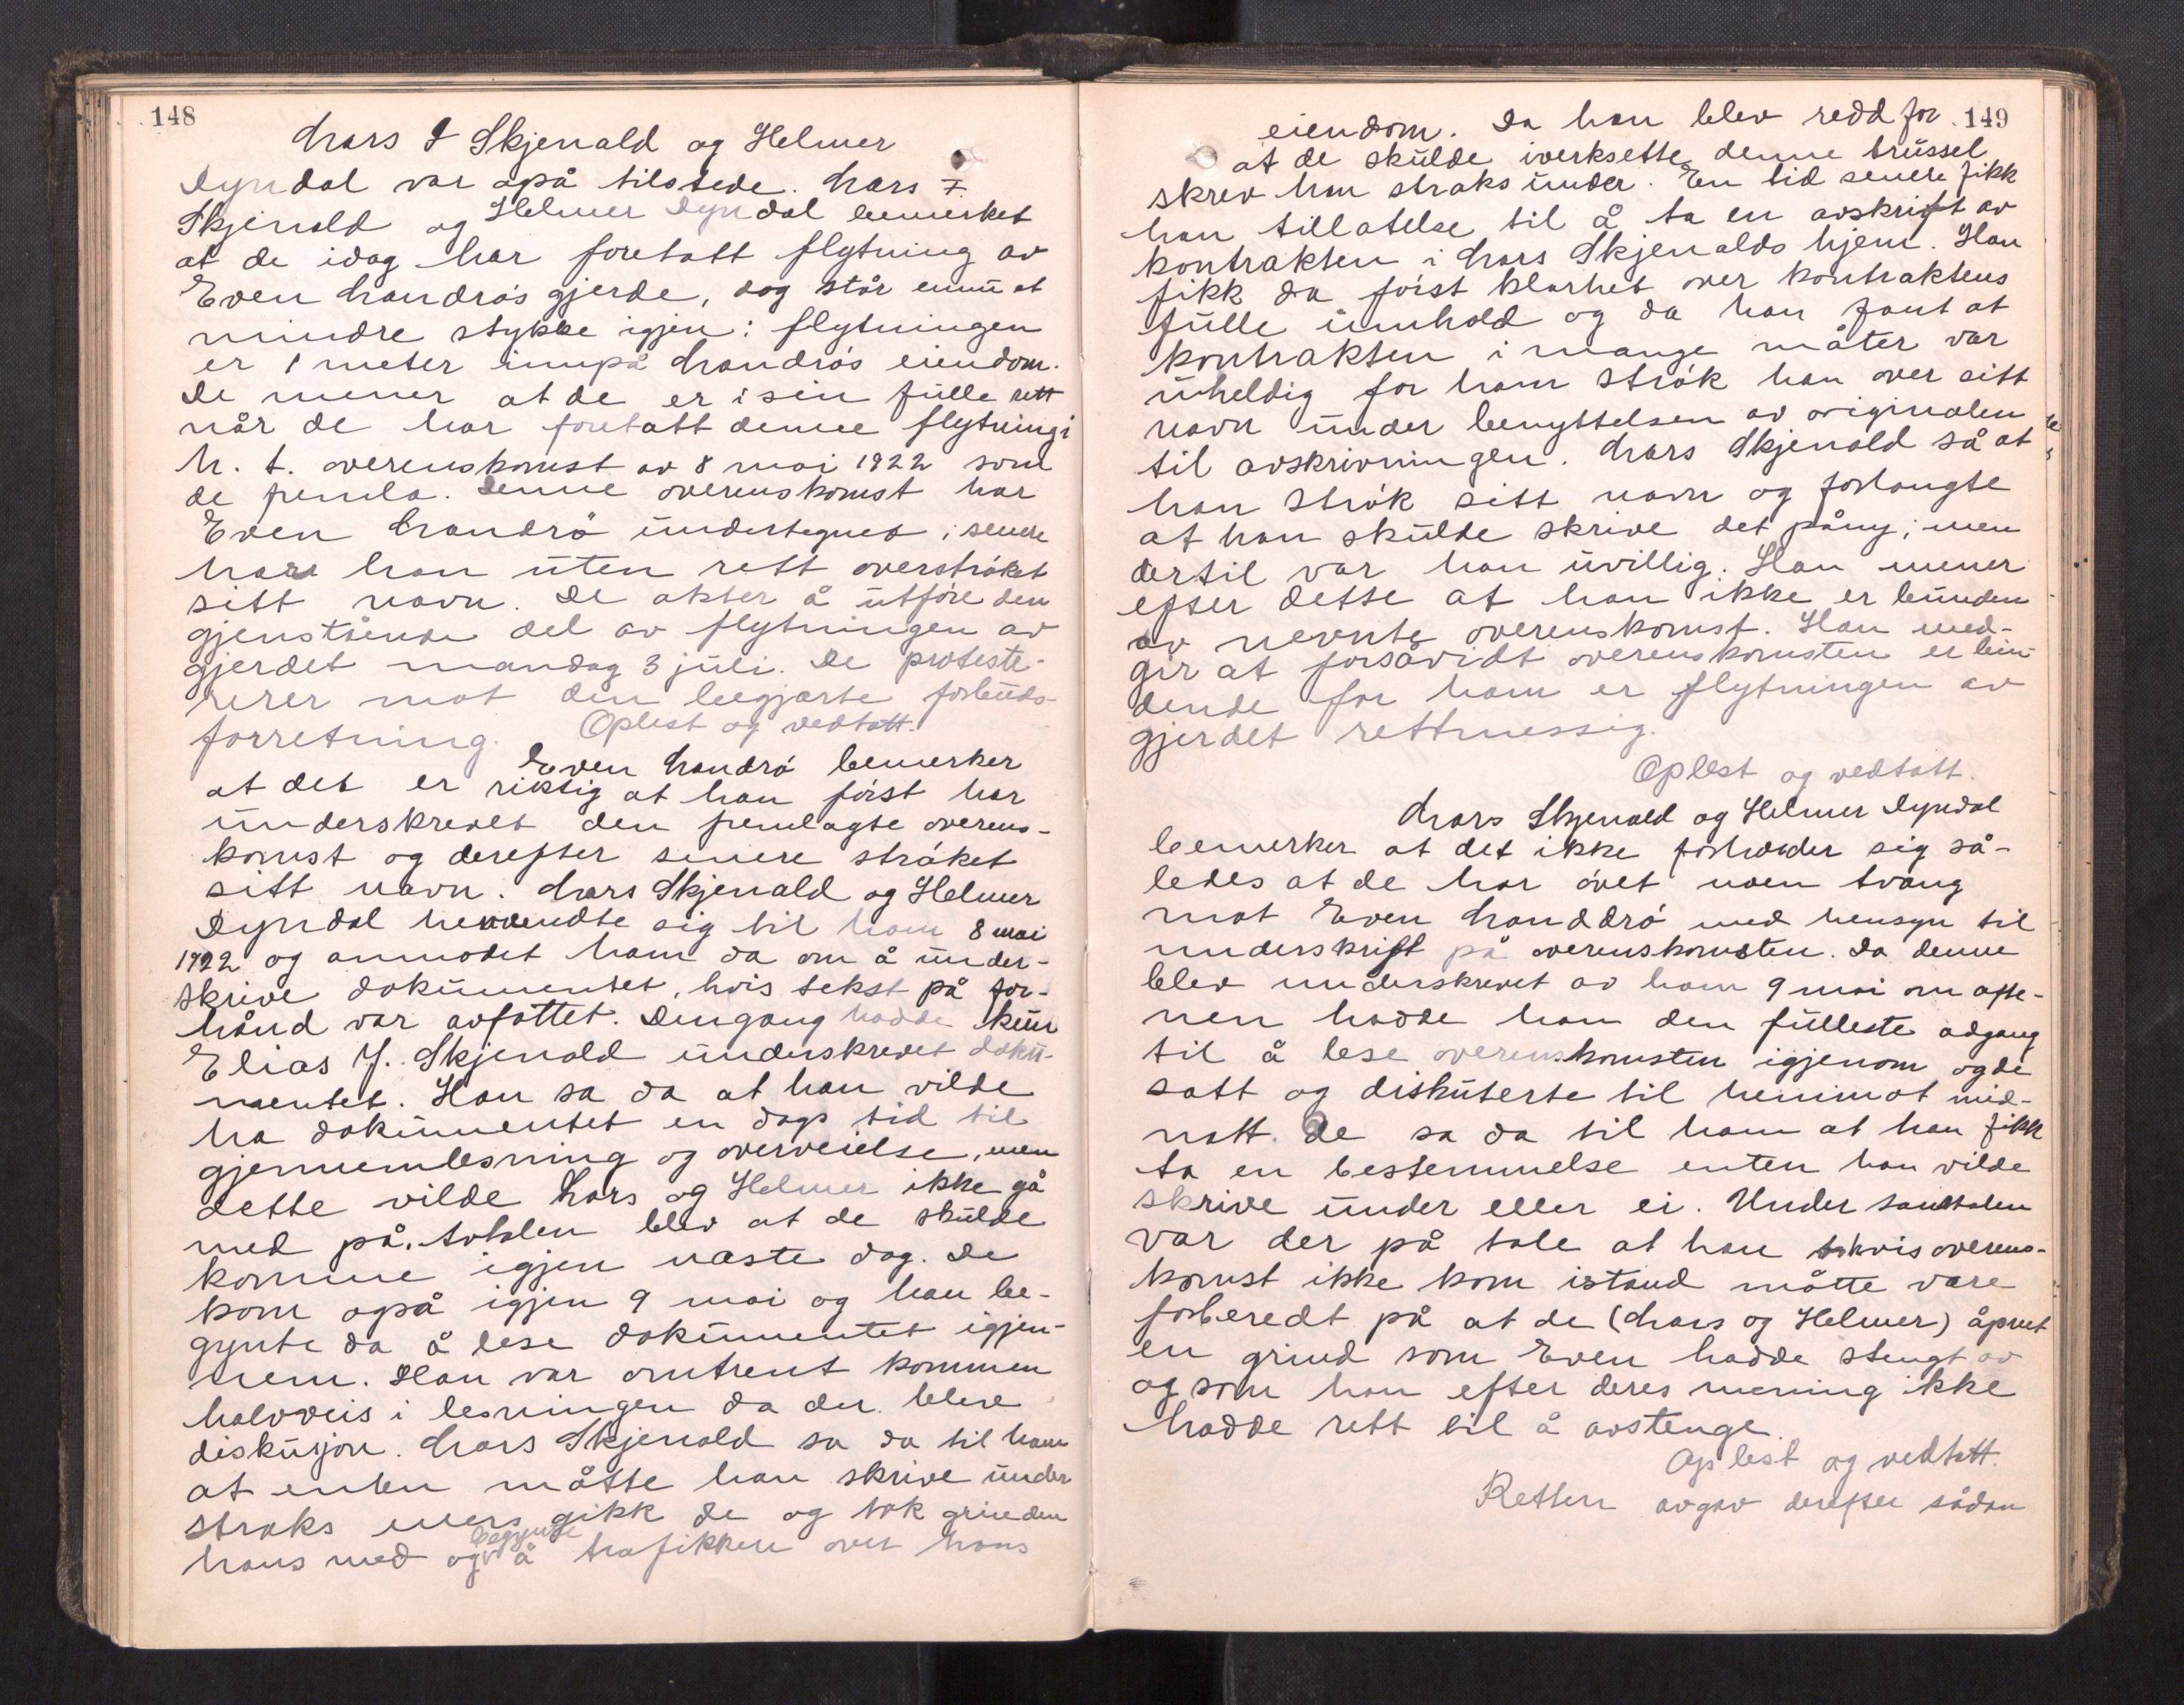 148
Lars I Skjenald og Helmer
Dyndal var også tilstede. Lars I.
Skjenald og Helmer Dyndal bemerket
at de idag har foretatt flytning av
Even Landrø's gjerde, dog står ennu et
mindre stykke igjen: flytningen
er 1 meter innpå Landrø's eiendom.
De mener at de er i sin fulle rett
når de har foretatt denne flytning i
h. t. overenskomst av 8 mai 1922 som
de fremla. Denne overenskomst har
Even Landrø undertegnet; senere
har han uten rett overstrøket
sitt navn. De akter å utføre den
gjenstående del av flytningen av
gjerdet mandag 3 juli. De proteste-
rerer mot den begjærte forbuds-
forretning. Oplest og vedtatt.
Even Landrø bemerker
at det er riktig at han først har
underskrevet den fremlagte overens-
komst og derefter senere strøket
sitt navn. Lars Skjenald og Helmer
Dyndal henvendte sig til ham 8 mai
1922 og anmodet ham da om å under-
skrive dokumentet, hvis tekst på for-
hånd var avfattet. Dengang hadde kun
Elias J. Skjenald underskrevet doku-
mentet. Han sa da at han vilde
ha dokumentet en dags tid til
gjennemlesning og overveielse, men
dette vilde Lars og Helmer ikke gå
med på. Avtalen blev at de skulde
komme igjen næste dag. De
kom også igjen 9 mai og han be-
gynte da å lese dokumentet igjen-
nem. Han var omtrent kommen
halvveis i lesningen da der blev
diskusjon. Lars Skjenald sa da til ham
at enten måtte han skrive under
straks ellers gikk de og tok grinden
hans med og begynte å trafikken over hans
149
eiendom. Da han blev redd for
at de skulde iverksette denne trussel
skrev han straks under. En tid senere fikk
han tillatelse til å ta en avskrift av
kontrakten i Lars Skjenalds hjem. Han
fikk da først klarhet over kontraktens
fulle innhold og da han fant at
kontrakten i mange måter var
uheldig for ham strøk han over sitt
navn under benyttelsen av originalen
til avskrivningen. Lars Skjenald så at
han strøk sitt navn og forlangte
at han skulde skrive det påny; men
dertil var han uvillig. Han mener
efter dette at han ikke er bunden
av nevnte overenskomst. Han med-
gir at forsåvidt overenskomsten er bin-
dende for ham er flytningen av
gjerdet rettmessig.
Oplest og vedtatt.
Lars Skjenald og Helmer Dyndal
bemerker at det ikke forholder sig så-
ledes at de har øvet noen tvang
mot Even Landdrø med hensyn til
underskrift på overenskomsten. Da denne
blev underskrevet av ham 9 mai om afte-
nen hadde han den fulleste adgang
til å lese overenskomsten igjenom og de
satt og diskuterte til henimot mid-
natt. De sa da til ham at han fikk
ta en bestemmelse enten han vilde
skrive under eller ei. Under samtalen
var der på tale at han hvis overens-
komst ikke kom istand måtte være
forberedt på at de (Lars og Helmer) åpnet
en grind som Even hadde stengt av
og som han efter deres mening ikke
hadde rett til å avstenge.
Oplest og vedtatt.
Retten avgav derefter sådan